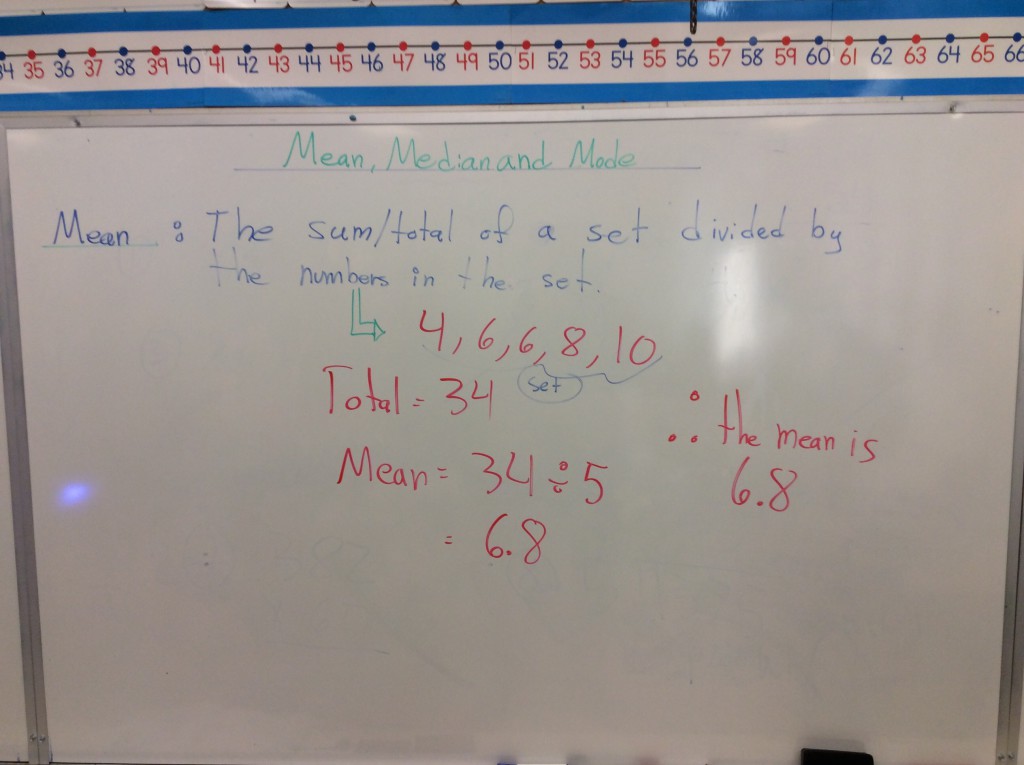 34 35 36 37 38 39 40 41 42 43 44 45 46 47 48 49 50 51 52 53 54 55 56 57 58 59 60 61 62 63 64 65 66
Mean, Median and Mode
Mean : The sum/total of a set divided by
the numbers in the set.
4, 6, 6, 8, 10
set
Total = 34
∴ the mean is
6.8
Mean = 34 ÷ 5
= 6.8